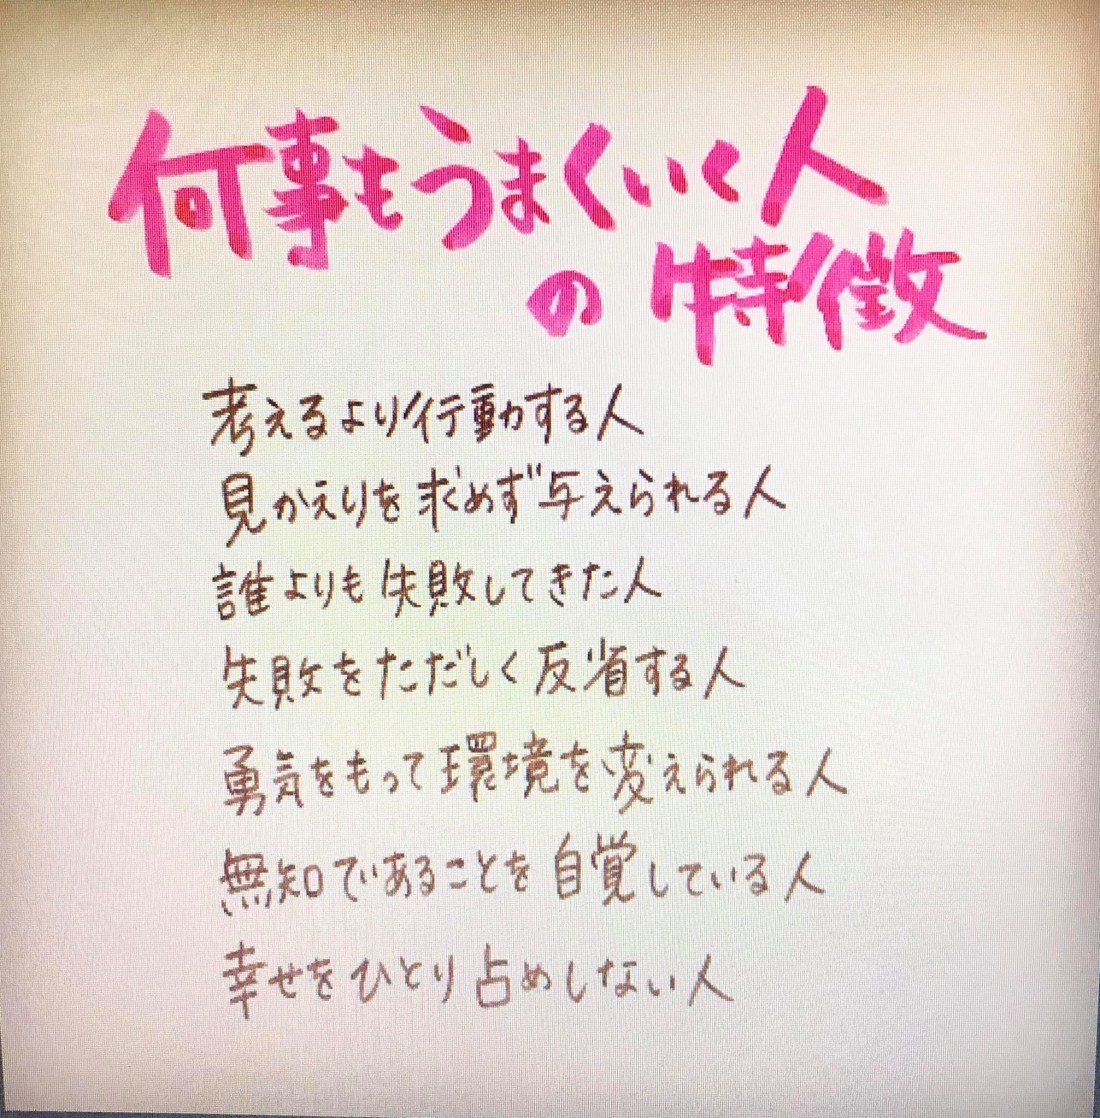 何事もうまくいく人
の特徴
考えるより行動する人
見かえりを求めず与えられる人
誰よりも失敗してきた人
失敗をただしく反省する人
勇気をもって環境を変えられる人
無知であることを自覚している人
幸せをひとり占めしない人